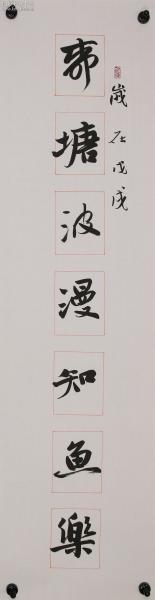 歲在戊戌
塘波漫知鱼樂